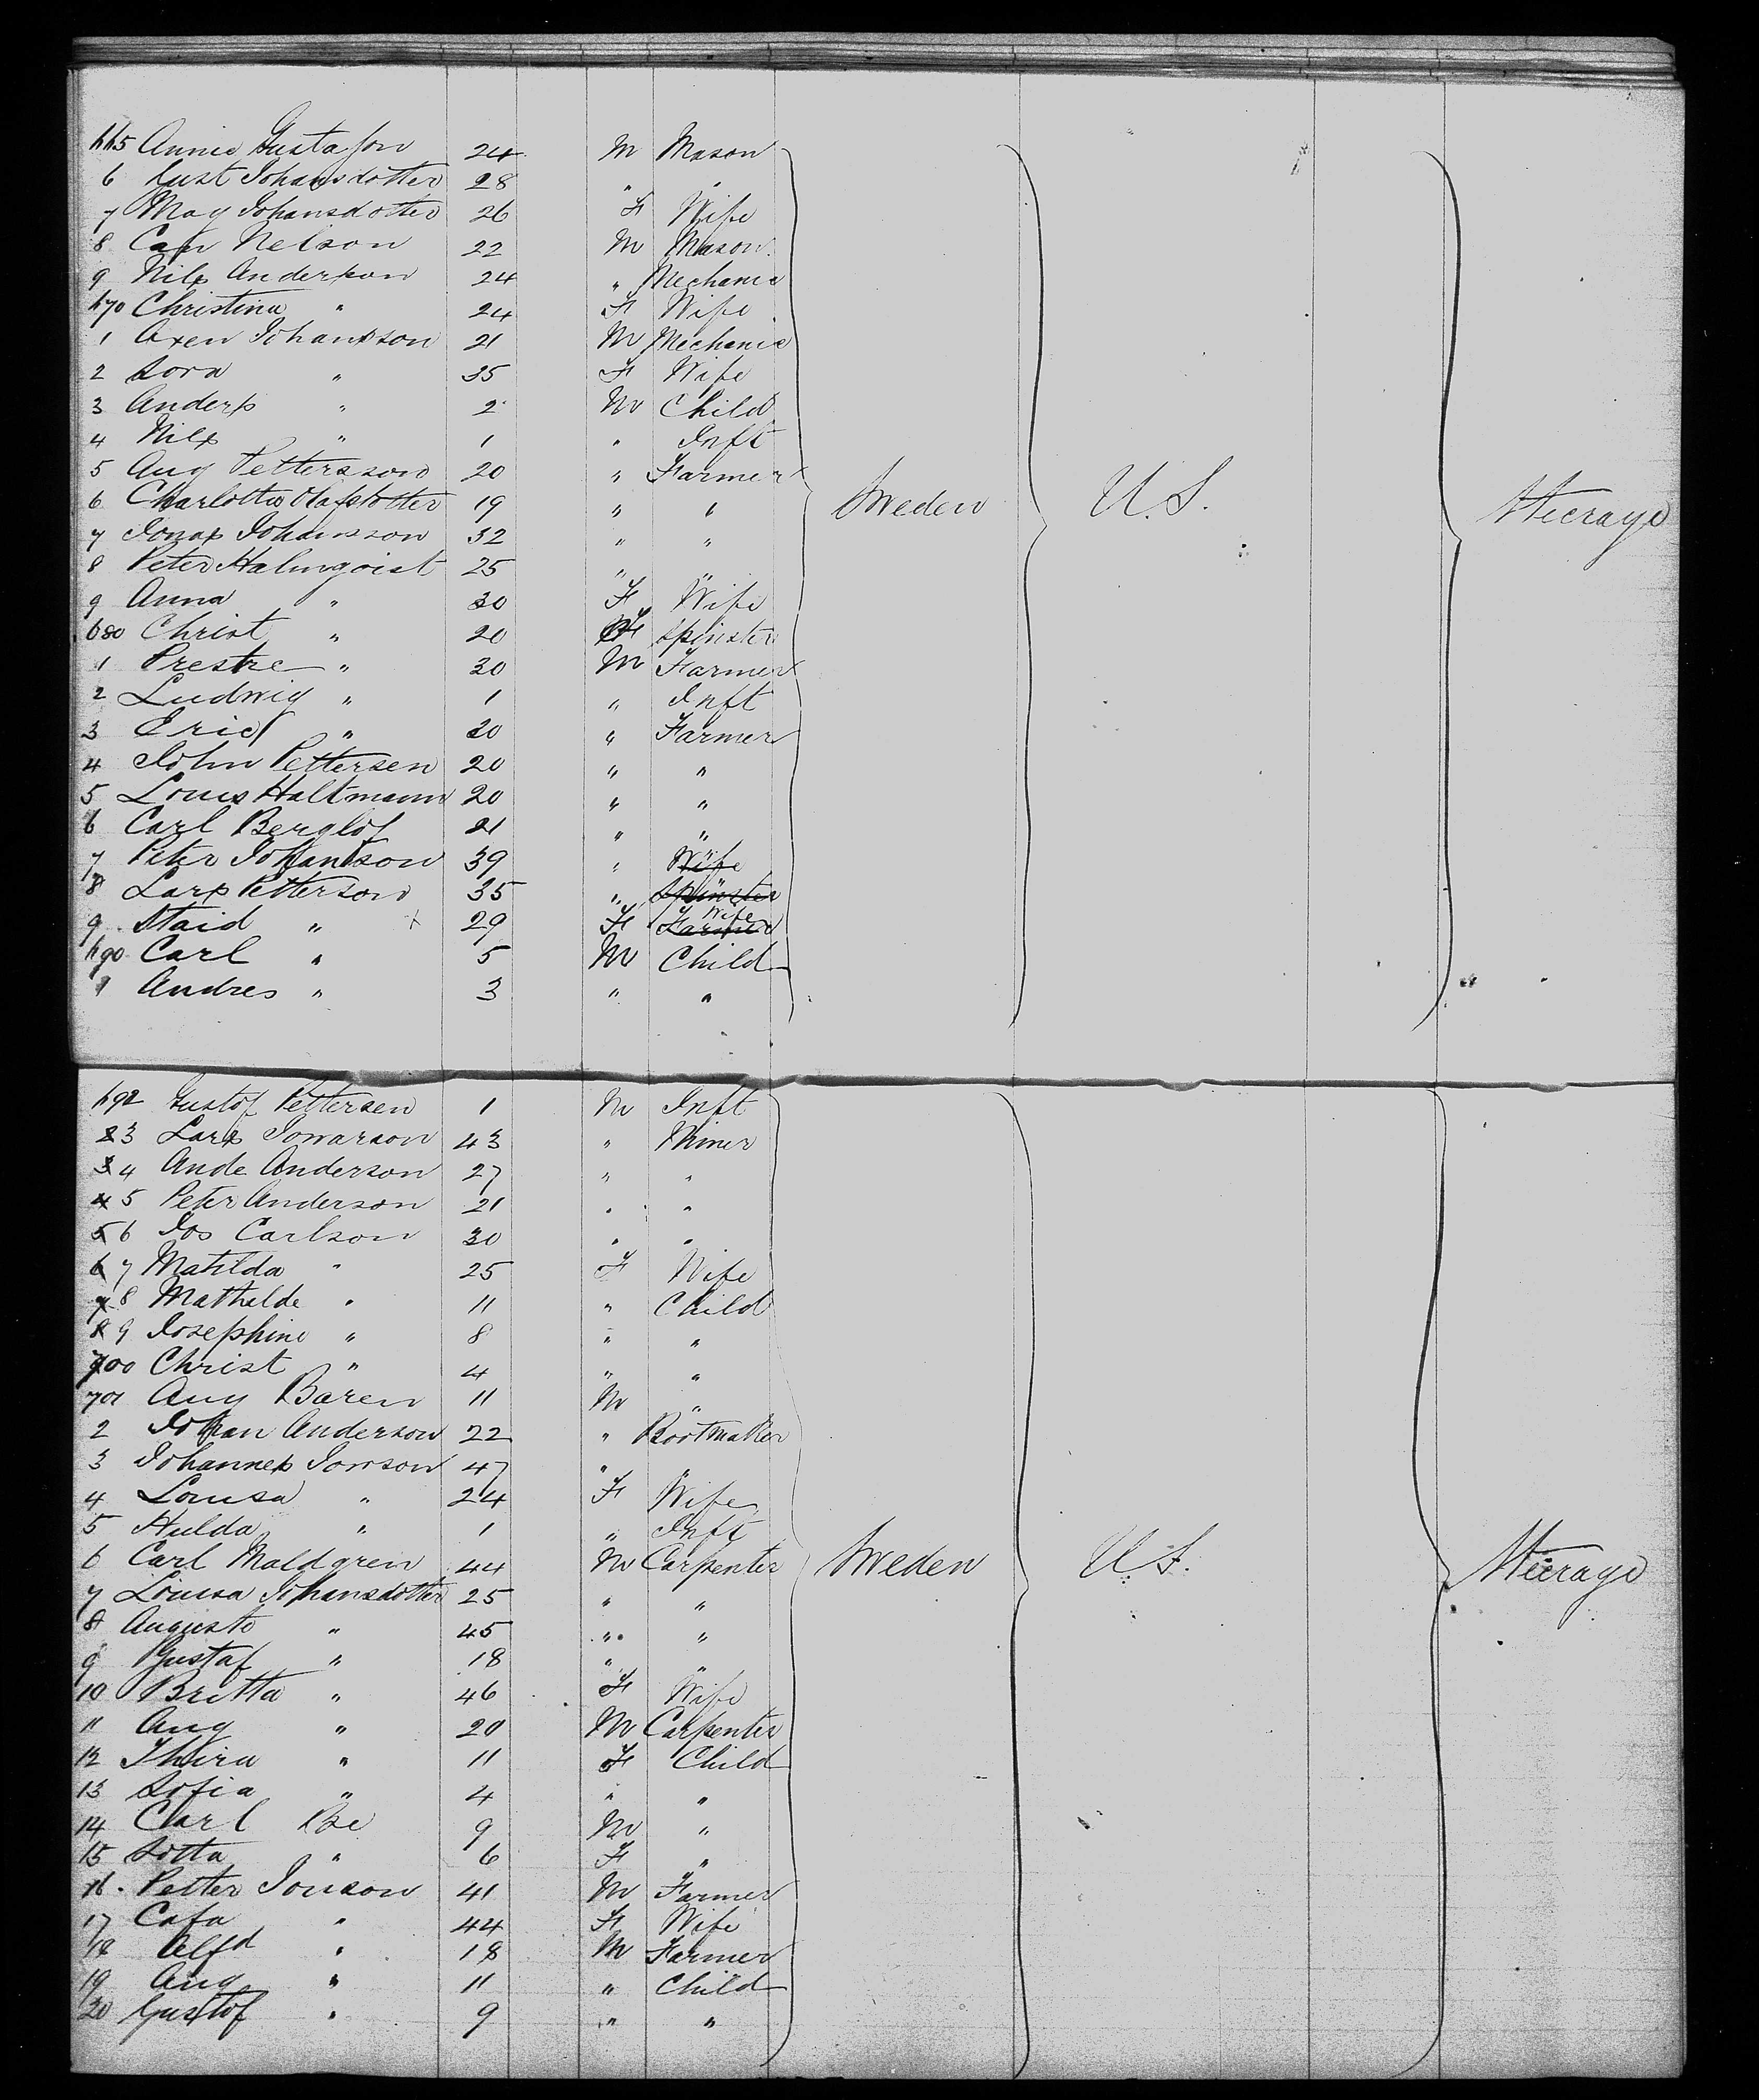 665 Annie Gustafson 24 M Mason
6 Gust Johansdotter 28 " "
7 May Johansdotter 26 F Wife
8 Carl Nelson 22 M Mason
9 Nils Anderson 24 " Mechanic
670 Christina " 24 F Wife
1 Axen Johansson 21 M Mechanic
2 Sora " 35 F Wife
3 Anders " 2 M Child
4 Nils " 1 " Inft
5 Aug Pettersson 20 " Farmer
6 Charlotta Olafsdotter 19 " "
7 Jonas Johansson 32 " "
8 Peter Halmqvist 25 " "
9 Anna " 30 F Wife
680 Christ " 20 F Spinster
1 Prestre " 30 M Farmer
2 Ludwig " 1 " Inft
3 Eric " 20 " Farmer
4 John Pettersen 20 " "
5 Louis Haltmann 20 " "
6 Carl Berglof 21 " "
7 Peter Johansson 39 " Wife
8 Lars Petterson 35 " Spinster
9 Staid " x 29 F Farmer Wife
690 Carl " 5 M Child
1 Andres " 3 " "
Sweden U.S. Steerage
692 Gustof Pettersen 1 M Inft
3 Lars Jonarson 43 " Miner
4 Ande Anderson 27 " "
5 Peter Anderson 21 " "
6 Jos Carlson 30 " "
7 Matilda " 25 F Wife
8 Mathelde " 11 " Child
9 Josephine " 8 " "
700 Christ " 4 " "
701 Aug Baren 11 M "
2 Johan Anderson 22 " Bootmaker
3 Johannes Jonson 47 " "
4 Lousa " 24 F Wife
5 Hulda " 1 " Inft
6 Carl Maldgren 44 M Carpenter
7 Lousa Johansdotter 25 " "
8 Augusto " 45 " "
9 Gustaf " 18 " "
10 Britta " 46 F Wife
11 Aug " 20 M Carpenter
12 Thira " 11 F Child
13 Sofia " 4 " "
14 Carl Be 9 M "
15 Lotta " 6 F "
16 Petter Jonson 41 M Farmer
17 Cafa " 44 F Wife
18 Alfd " 18 M Farmer
19 Aug " 11 " Child
20 Gustof " 9 " "
Sweden U.S. Steerage